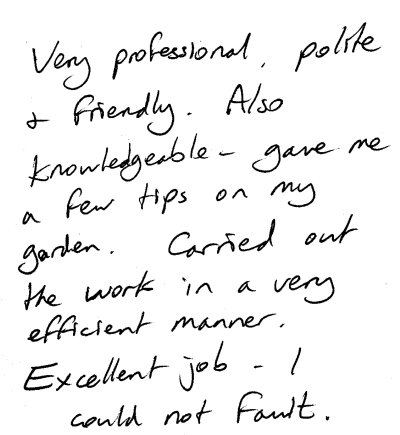 Very professional, polite
& friendly. Also
knowledgeable - gave me
a few tips on my
garden. Carried out
the work in a very
efficient manner.
Excellent job - I
could not fault.